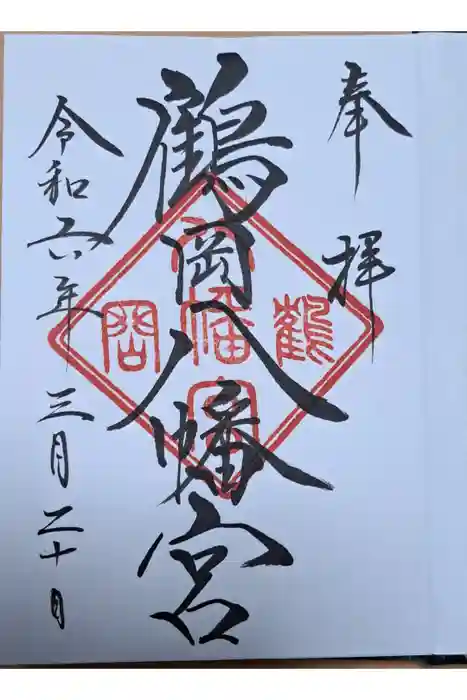 奉拝
鶴岡八幡宮
鶴岡八幡宮
令和六年三月二十日